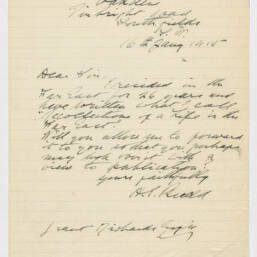 Pinbright Road
Southfields
S.W.
16th Jany 1915
Dear Sir,
I resided in the
Far East for 26 years and
have written what I call
"Recollections of a life in the
Far East."
Will you allow you to forward
it to you so that you perhaps
may look over it with a
view to publication?
Yours faithfully
Grant Richards Esq